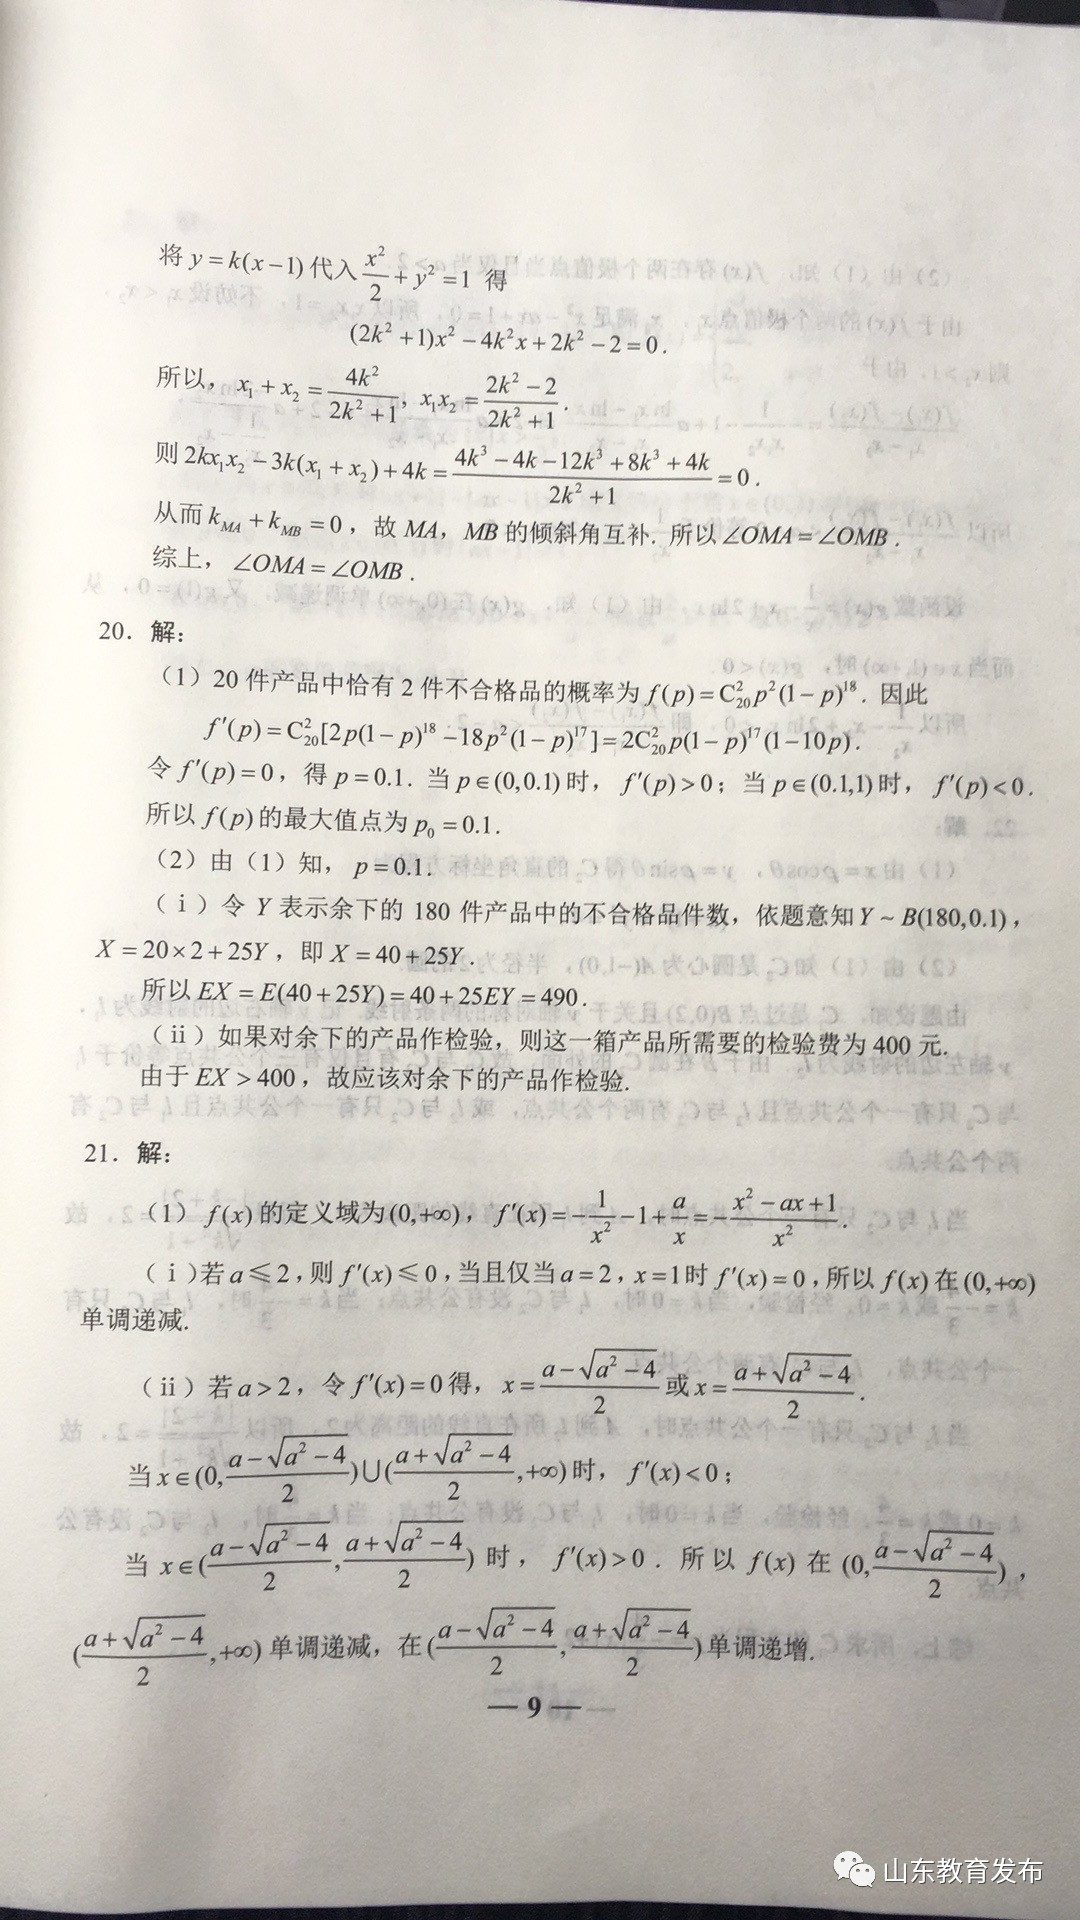 将 y = k(x−1) 代入 x²/2 + y² = 1 得
(2k² +1)x² − 4k²x + 2k² − 2 = 0.
所以, x₁ + x₂ = 4k²/(2k² +1), x₁x₂ = (2k² − 2)/(2k² +1).
则 2kx₁x₂ − 3k(x₁ + x₂) + 4k = (4k³ − 4k −12k³ + 8k³ + 4k)/(2k² +1) = 0.
从而 k_MA + k_MB = 0, 故 MA, MB 的倾斜角互补. 所以 ∠OMA = ∠OMB.
综上, ∠OMA = ∠OMB.
20. 解:
(1) 20 件产品中恰有 2 件不合格品的概率为 f(p) = C²₂₀p²(1− p)¹⁸. 因此
f′(p) = C²₂₀[2p(1− p)¹⁸ −18p²(1− p)¹⁷] = 2C²₂₀p(1− p)¹⁷(1−10p).
令 f′(p) = 0, 得 p = 0.1. 当 p∈(0,0.1) 时, f′(p) > 0; 当 p∈(0.1,1) 时, f′(p) < 0.
所以 f(p) 的最大值点为 p₀ = 0.1.
(2) 由 (1) 知, p = 0.1.
(ⅰ) 令 Y 表示余下的 180 件产品中的不合格品件数, 依题意知 Y ~ B(180,0.1),
X = 20×2 + 25Y, 即 X = 40 + 25Y.
所以 EX = E(40 + 25Y) = 40 + 25EY = 490.
(ⅱ) 如果对余下的产品作检验, 则这一箱产品所需要的检验费为 400 元.
由于 EX > 400, 故应该对余下的产品作检验.
21. 解:
(1) f(x) 的定义域为 (0,+∞), f′(x) = −1/x² −1+ a/x = −(x² − ax +1)/x².
(ⅰ) 若 a ⩽ 2, 则 f′(x) ⩽ 0, 当且仅当 a = 2, x = 1 时 f′(x) = 0, 所以 f(x) 在 (0,+∞)
单调递减.
(ⅱ) 若 a > 2, 令 f′(x) = 0 得, x = (a − √(a² − 4))/2 或 x = (a + √(a² − 4))/2.
当 x∈(0, (a − √(a² − 4))/2)∪((a + √(a² − 4))/2, +∞) 时, f′(x) < 0;
当 x∈((a − √(a² − 4))/2, (a + √(a² − 4))/2) 时, f′(x) > 0. 所以 f(x) 在 (0, (a − √(a² − 4))/2),
((a + √(a² − 4))/2, +∞) 单调递减, 在 ((a − √(a² − 4))/2, (a + √(a² − 4))/2) 单调递增.
— 9 —
山东教育发布